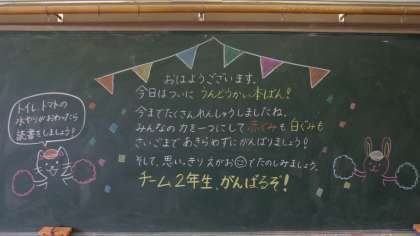 おはようございます。
今日はついに うんどうかい本ばん!
今までたくさんれんしゅうしましたね。
みんなの力を一つにして 赤ぐみも 白ぐみも
さいごまであきらめずにがんばりましょう!
そして、思いっきりえがお☺でたのしみましょう。
チーム2年生、がんばるぞ!
トイレ、トマトの
水やりがおわったら
読書をしましょう!